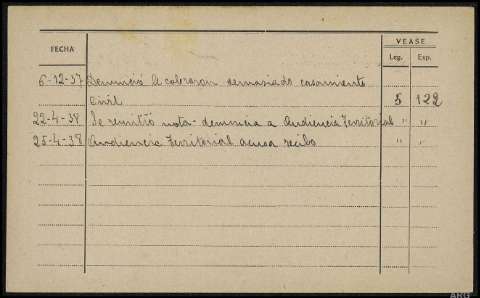 FECHA VEASE
Leg. Exp.
6-12-37 Denunció le cobraron demasiado casamiento
Civil 5 122
22-4-38 Se remitió nota-denuncia a Audiencia Territorial " "
25-4-38 Audiencia Territorial acusa recibo " "
ARG